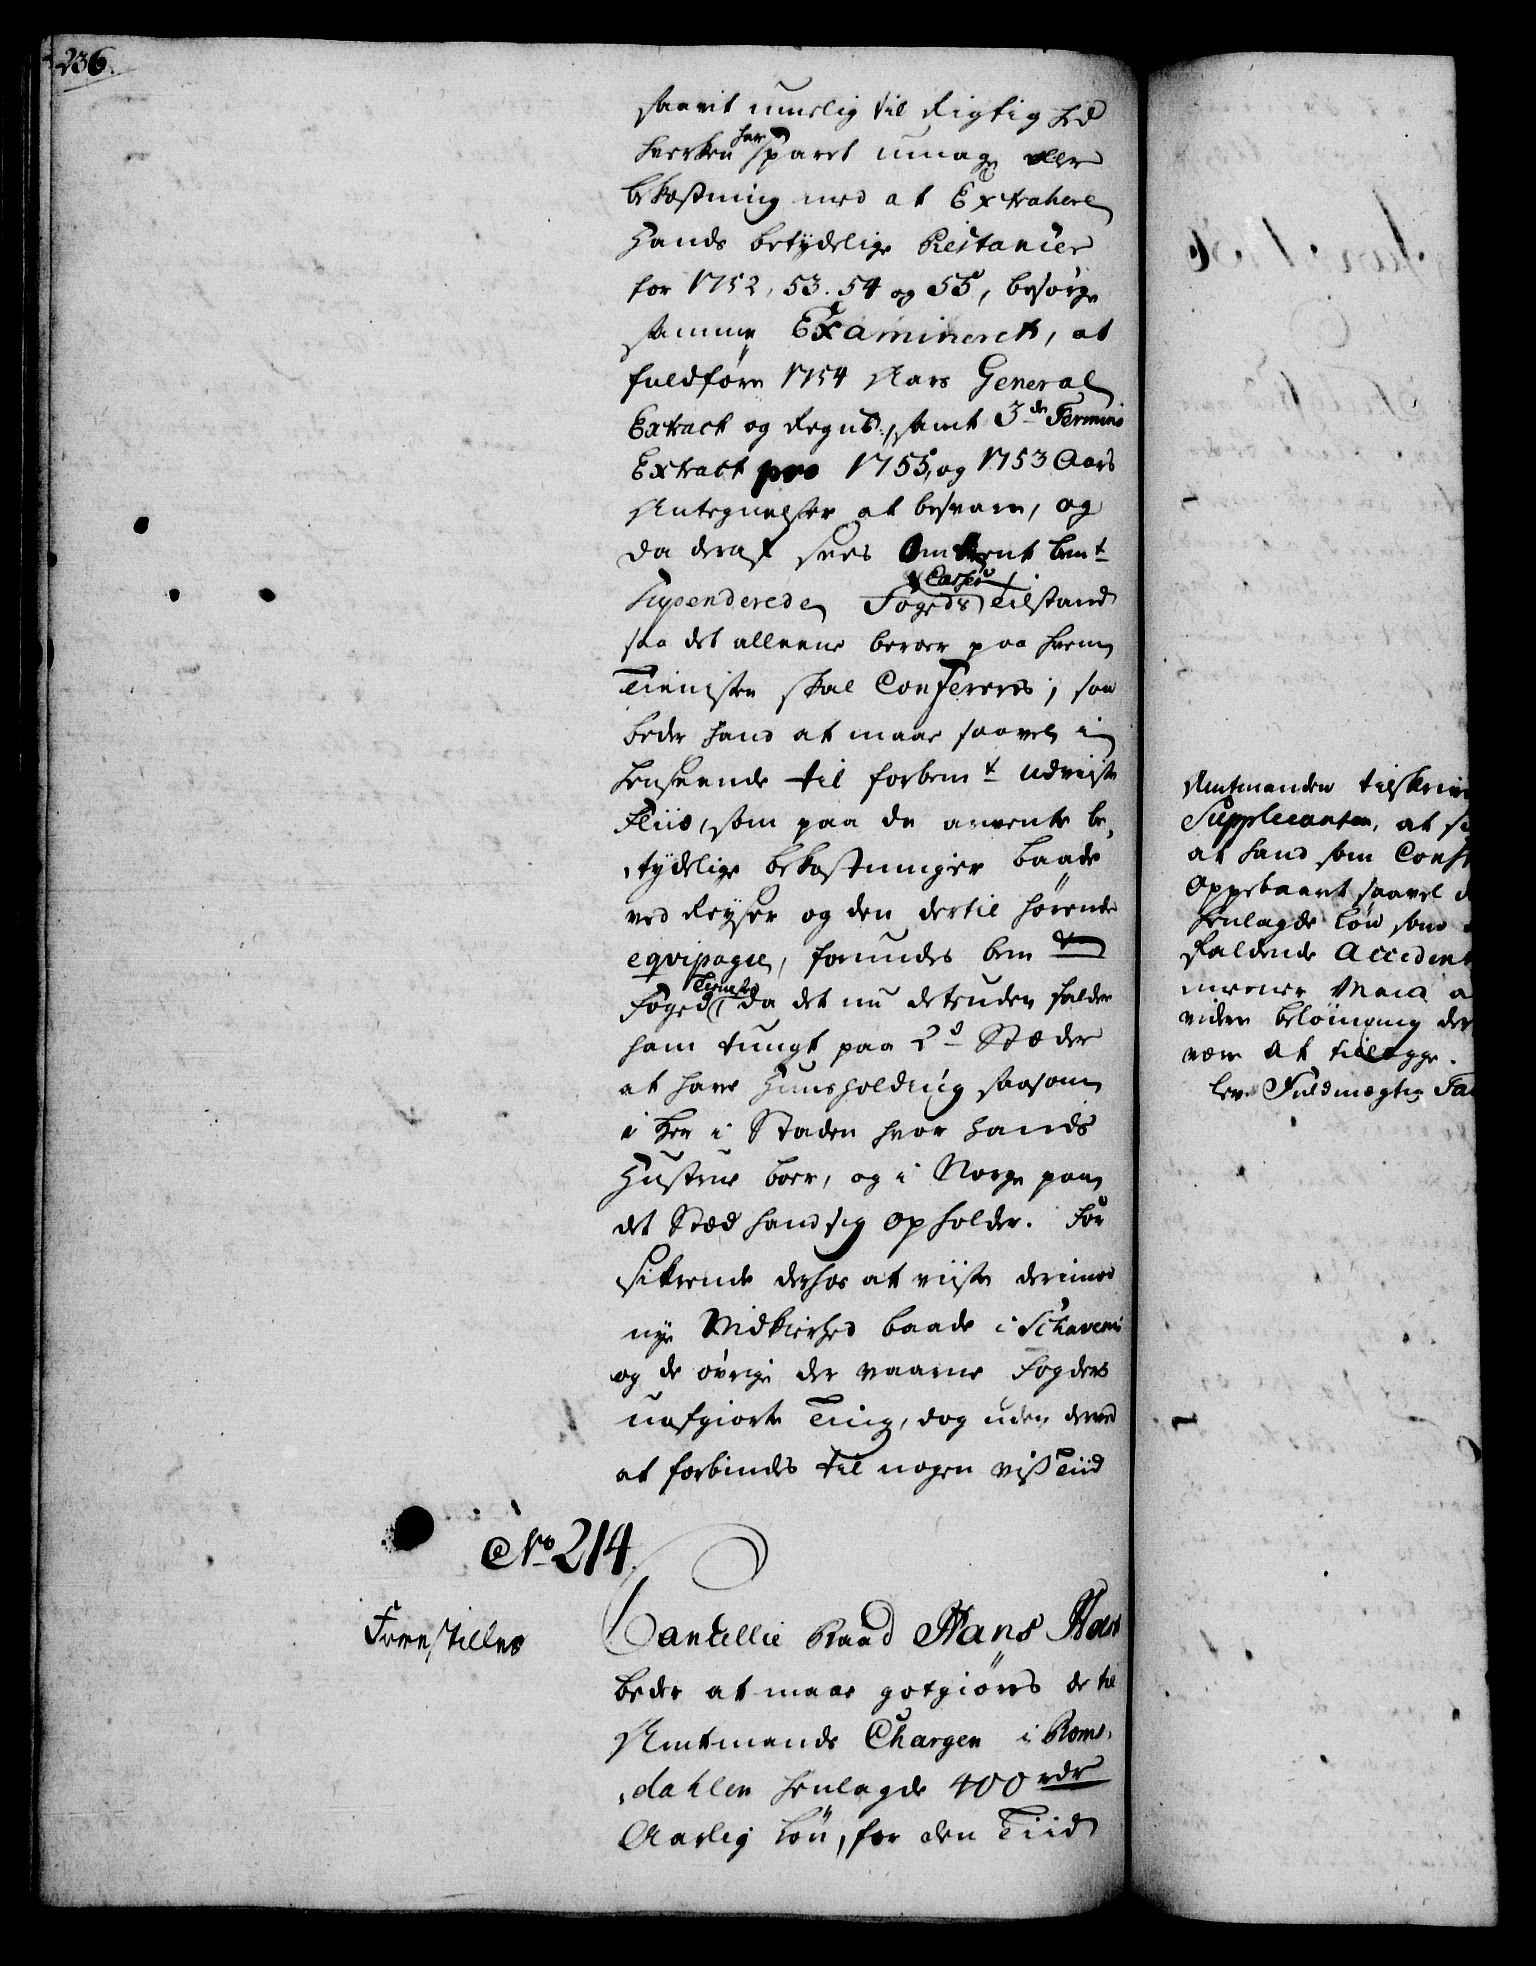 236.
saavit muelig til Rigtighed
hverken har sparet umage eller
bekostning med at Extrahere
Hands betydelige Restancer
for 1752, 53. 54 og 55, besørge
samme Examineret, at
fuldføre 1754 Aars General
Extract og Regnsk:, samt 3de Termins
Extract pro 1755, og 1753 Aars
Antegnelser at besvare, og
da deraf sees Omtrent bemt
Suspenderede Fogeds Casses Tilstand
saa det alleene beroer paa hvem
Tienisten skal Confereres, saa
beder hand at maae saavel i
henseende til forbemt udviiste
Fliid, som paa de anvendte be,
tydelige bekostninger baade
ved Reyser og den dertil hørende
eqvipagie, forundes bemt
Foged Tieniste, da det nu desuden falder
ham tungt paa 2de Stæder
at have Huusholdning saasom
i her i Staden hvor hands
Hustrue boer, og i Norge paa
det Stæd hand sig opholder. For
sikrende derhos at viise derimod
nye Nidkierhed baade i Schavenii
og de øvrige der værne Fogders
uafgiorte Ting, dog uden derved
at forbindes til nogen viss Tiid
No 214.
Fremstilles
Cancellie Raad Hans Holst
beder at maae gotgiøres de til
Amtmands Chargen i Roms,
dahlen henlagde 400 rdr
Aarlig løn, for den Tiid
Amtmanden tilskriv
Supplicanten, at
at hand som Const
Oppebaaret saavel
henlagde løn, som
faldende Accident
meener Maia
videre belønning der
være at tillegge.
lev. Fuldmægtig